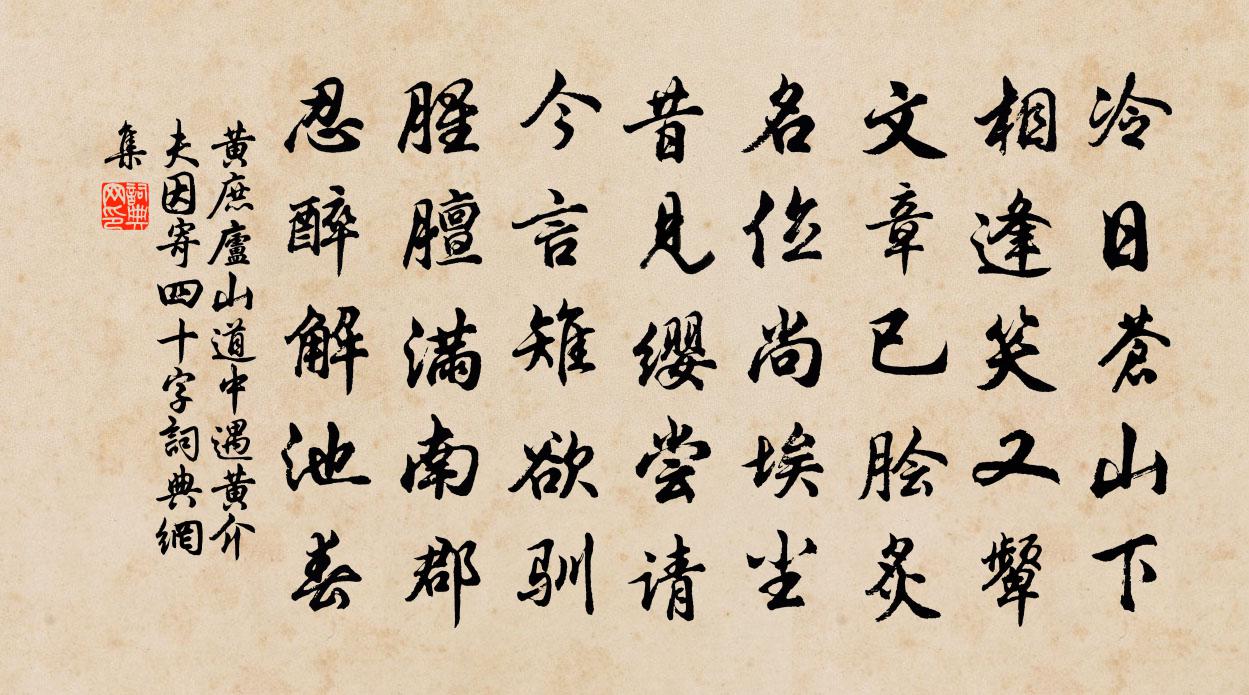 冷日苍山下
相逢笑又颦
文章已脍炙
名位尚埃尘
昔见缨尝请
今言雉欲驯
腥膻满南郡
忍醉解池春
黄庶庐山道中遇黄介
夫因寄四十字詞典網
集
詞典网印